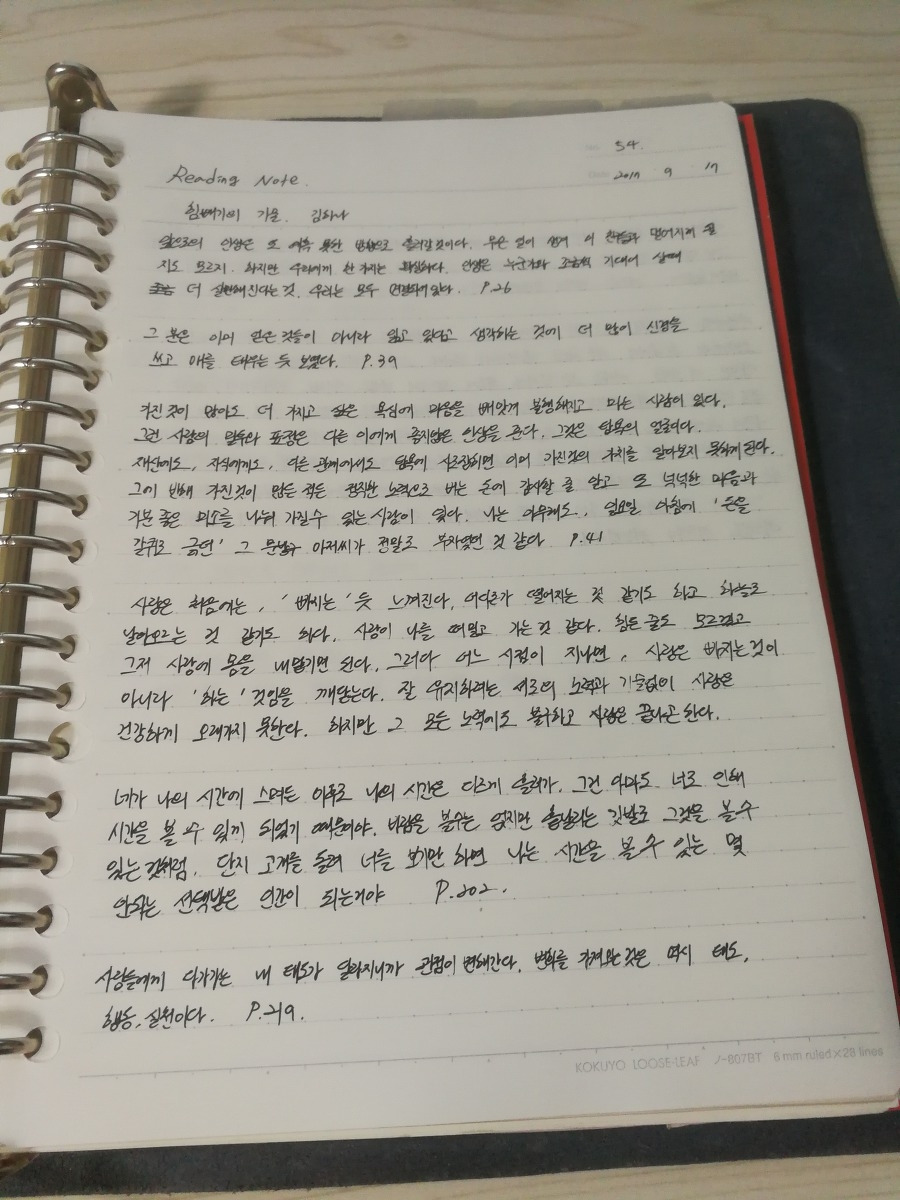 54.
Date 2017 9 17
Reading Note.
힘빼기의 기술. 김하나
앞으로의 인생은 또 예측 못한 방향으로 흘러갈 것이다. 무슨 일이 생겨 이 친구들과 멀어지게 될
지도 모르지. 하지만 우리에게 한 가지는 확실하다. 인생은 누군가와 조금씩 기대어 살 때
더 살만해진다는 것. 우리는 모두 연결되어 있다. P.26
그 분은 이미 얻은 것들이 아니라 잃고 있다고 생각하는 것에 더 많이 신경을
쓰고 애를 태우는 듯 보였다. P.39
가진 것이 많아도 더 가지고 싶은 욕심에 마음을 빼앗겨 불행해지고 마는 사람이 있다.
그런 사람의 말투와 표정은 다른 이에게 좋지않은 인상을 준다. 그것은 탐욕의 얼룩이다.
재산에도, 자식에게도, 다른 관계에서도 탐욕에 사로잡히면 이미 가진것의 가치를 알아보지 못하게 된다.
그에 반해 가진 것이 많든 적든 정직한 노력으로 버는 돈에 감사할 줄 알고 또 넉넉한 마음과
기분 좋은 미소를 나눠 가질 수 있는 사람이 있다. 나는 아무래도, 일요일 아침에 '돈을
갈퀴로 긁던' 그 아저씨가 정말로 부자였던 것 같다 P.41
사랑은 처음에는, '빠지는' 듯 느껴진다. 어디론가 떨어지는 것 같기도 하고 하늘로
날아오르는 것 같기도 하다. 사랑이 나를 떠밀고 가는 것 같다. 힘든 줄도 모르겠고
그저 사랑에 몸을 내맡기면 된다. 그러다 어느 시점이 지나면, 사랑은 빠지는 것이
아니라 '하는' 것임을 깨닫는다. 잘 유지하려는 서로의 노력과 기술없이 사랑은
건강하게 오래가지 못한다. 하지만 그 모든 노력에도 불구하고 사랑은 끝나곤 한다.
네가 나의 시간에 스며든 이후로 나의 시간은 다르게 흘러가. 그건 아마도 너로 인해
시간을 볼 수 있게 되었기 때문이야. 바람을 볼수는 없지만 흩날리는 깃발로 그것을 볼 수
있는 것처럼. 단지 고개를 돌려 너를 보기만 하면 나는 시간을 볼 수 있는 몇
안되는 선택받은 인간이 되는거야 P.202.
사람들에게 다가가는 내 태도가 달라지니까 관점이 변해간다. 변화를 가져오는 것은 역시 태도,
행동, 실천이다. P.219.
KOKUYO LOOSE-LEAF ノ-807BT 6 mm ruled×28 lines